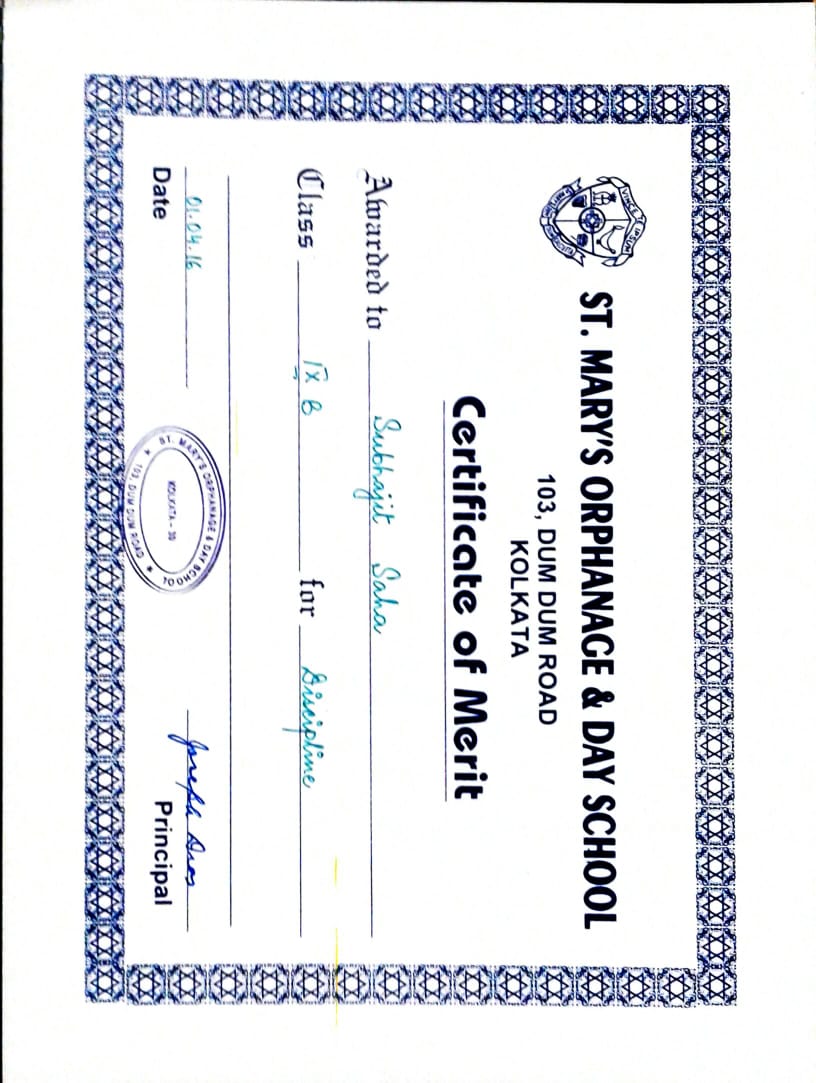 VINCE TE IPSUM
ST. MARY'S ORPHANAGE & DAY SCHOOL
103, DUM DUM ROAD
KOLKATA
Certificate of Merit
Awarded to Subhajit Saha
Class IX B for Discipline
01.04.16
Date
ST. MARY'S ORPHANAGE & DAY SCHOOL
KOLKATA - 30
★ 103, DUM DUM ROAD ★
Joseph
Principal